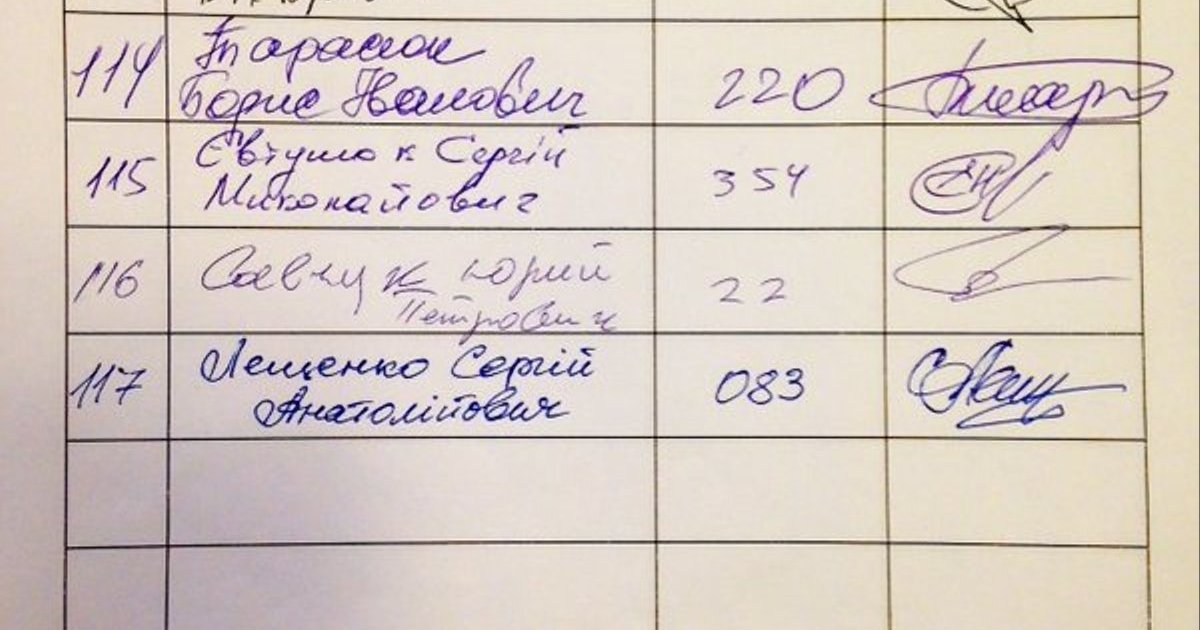 114 Тарасюк
Борис Іванович 220
115 Євтушок Сергій
Миколайович 354
116 Савчук Юрій
Петрович 22
117 Лещенко Сергій
Анатолійович 083